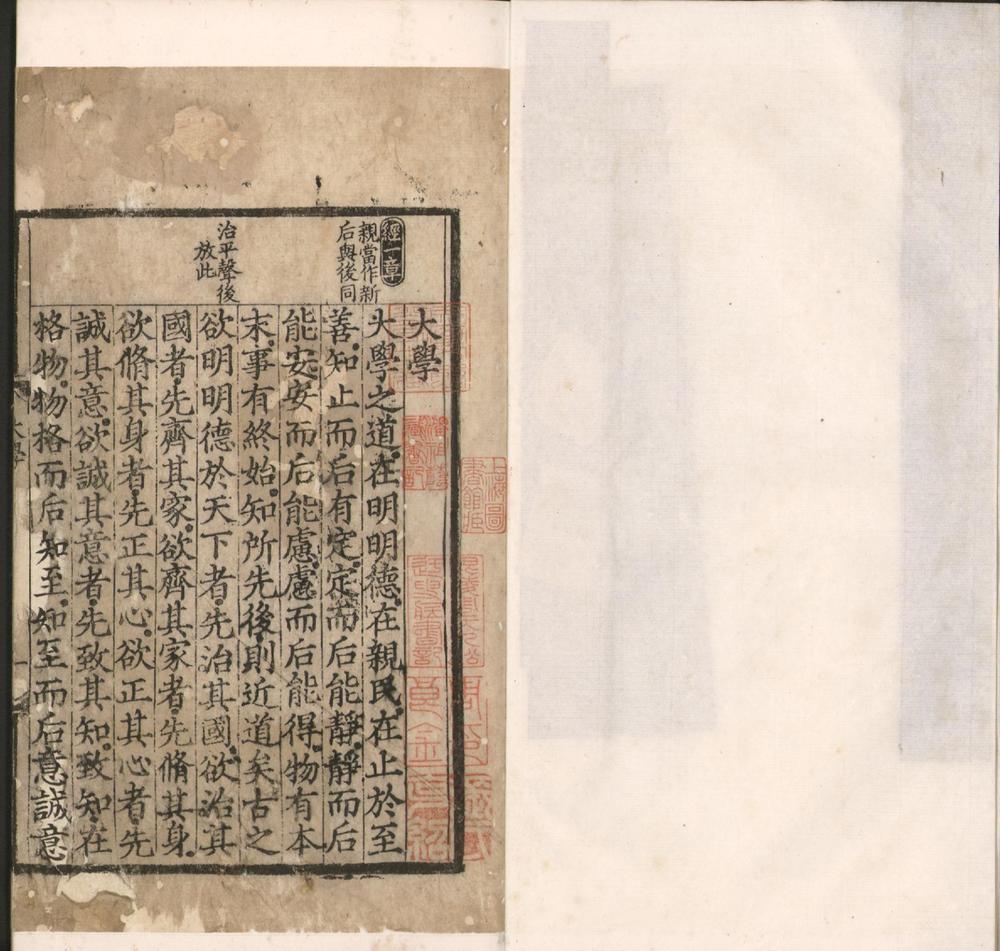 經一章
親當作新
后與後同
治平聲後
放此
大學
大學之道在明明德在親民在止於至
善知止而后有定定而后能靜靜而后
能安安而后能慮慮而后能得物有本
末事有終始知所先後則近道矣古之
欲明明德於天下者先治其國欲治其
國者先齊其家欲齊其家者先脩其身
欲脩其身者先正其心欲正其心者先
誠其意欲誠其意者先致其知致知在
格物物格而后知至知至而后意誠意
大學
一
上海圖
書館藏